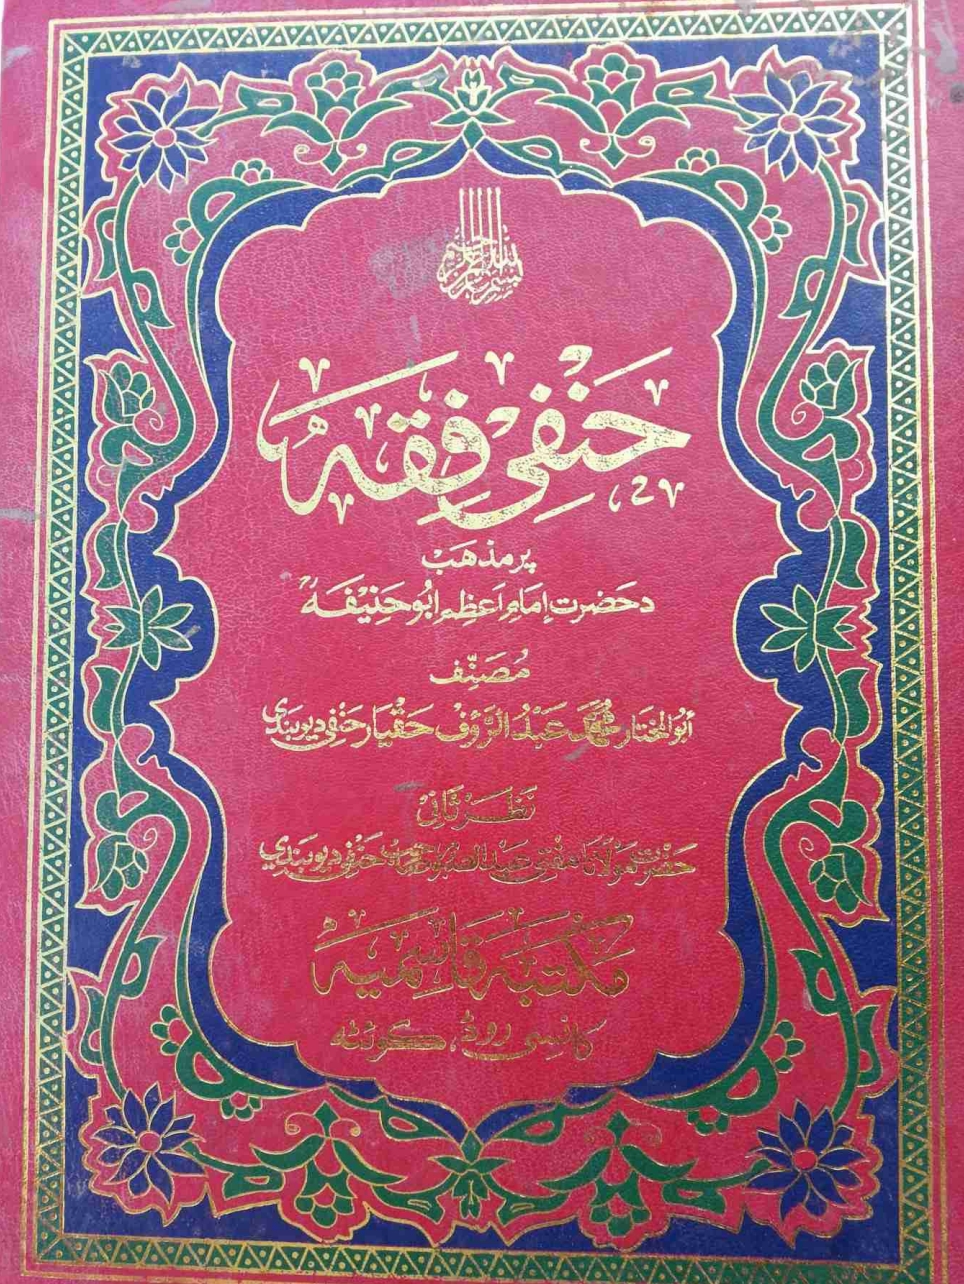 بسم الله الرحمن الرحيم
حنفی فقه
پر مذهب
د حضرت امام اعظم ابو حنیفه ؒ
مُصَنِّف
ابو المختار محمد عبد الرؤف حقیار حنفی دیوبندي
نظر ثانی
حضرت مولانا مفتی عبد الصبور صاحب حنفی دیوبندي
مکتبه قاسمیه
کانسی روڈ، کوئٹه